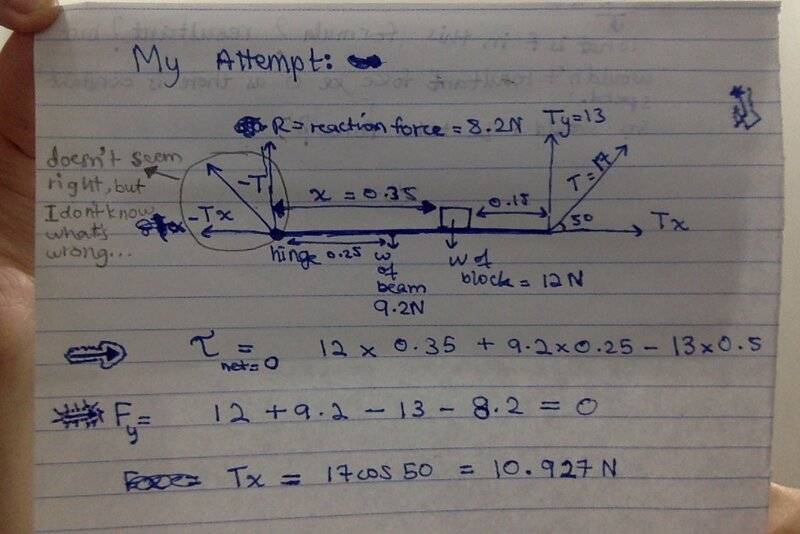 My Attempt:
R = reaction force = 8.2N
Ty = 13
doesn't seem
right, but
I don't know
what's
wrong...
-T
-Tx
x = 0.35
0.15
T = 17
50
Tx
hinge
0.25
w
of
beam
9.2N
w of
block = 12N
τ net=0 = 12 x 0.35 + 9.2x0.25 - 13x0.5
Fy = 12 + 9.2 - 13 - 8.2 = 0
Tx = 17cos 50 = 10.927N